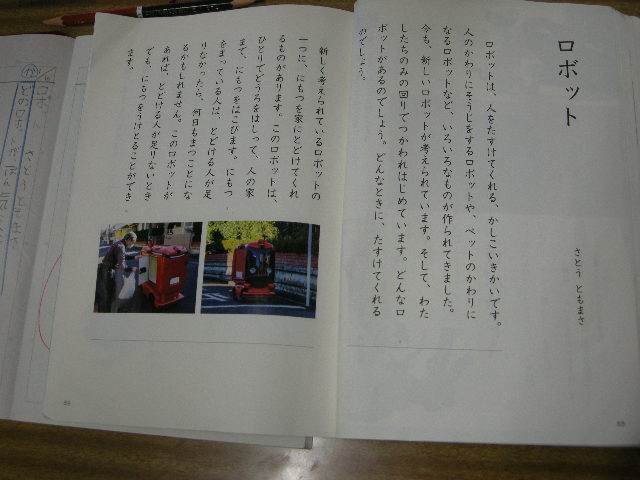 ロボット
さとう ともまさ
ロボットは、人をたすけてくれる、かしこいきかいです。
人のかわりにそうじをするロボットや、ペットのかわりに
なるロボットなど、いろいろなものが作られてきました。
今も、新しいロボットが考えられています。そして、わた
したちのみの回りでつかわれはじめています。どんなロ
ボットがあるのでしょう。どんなときに、たすけてくれる
のでしょう。
新しく考えられているロボットの
一つに、にもつを家にとどけてくれ
るものがあります。このロボットは、
ひとりでどうろをはしって、人の家
まで、にもつをはこびます。にもつ
をまっている人は、とどける人が足
りなかったら、何日もまつことにな
るかもしれません。このロボットが
あれば、とどける人が足りないとき
でも、にもつをうけとることができ
ます。